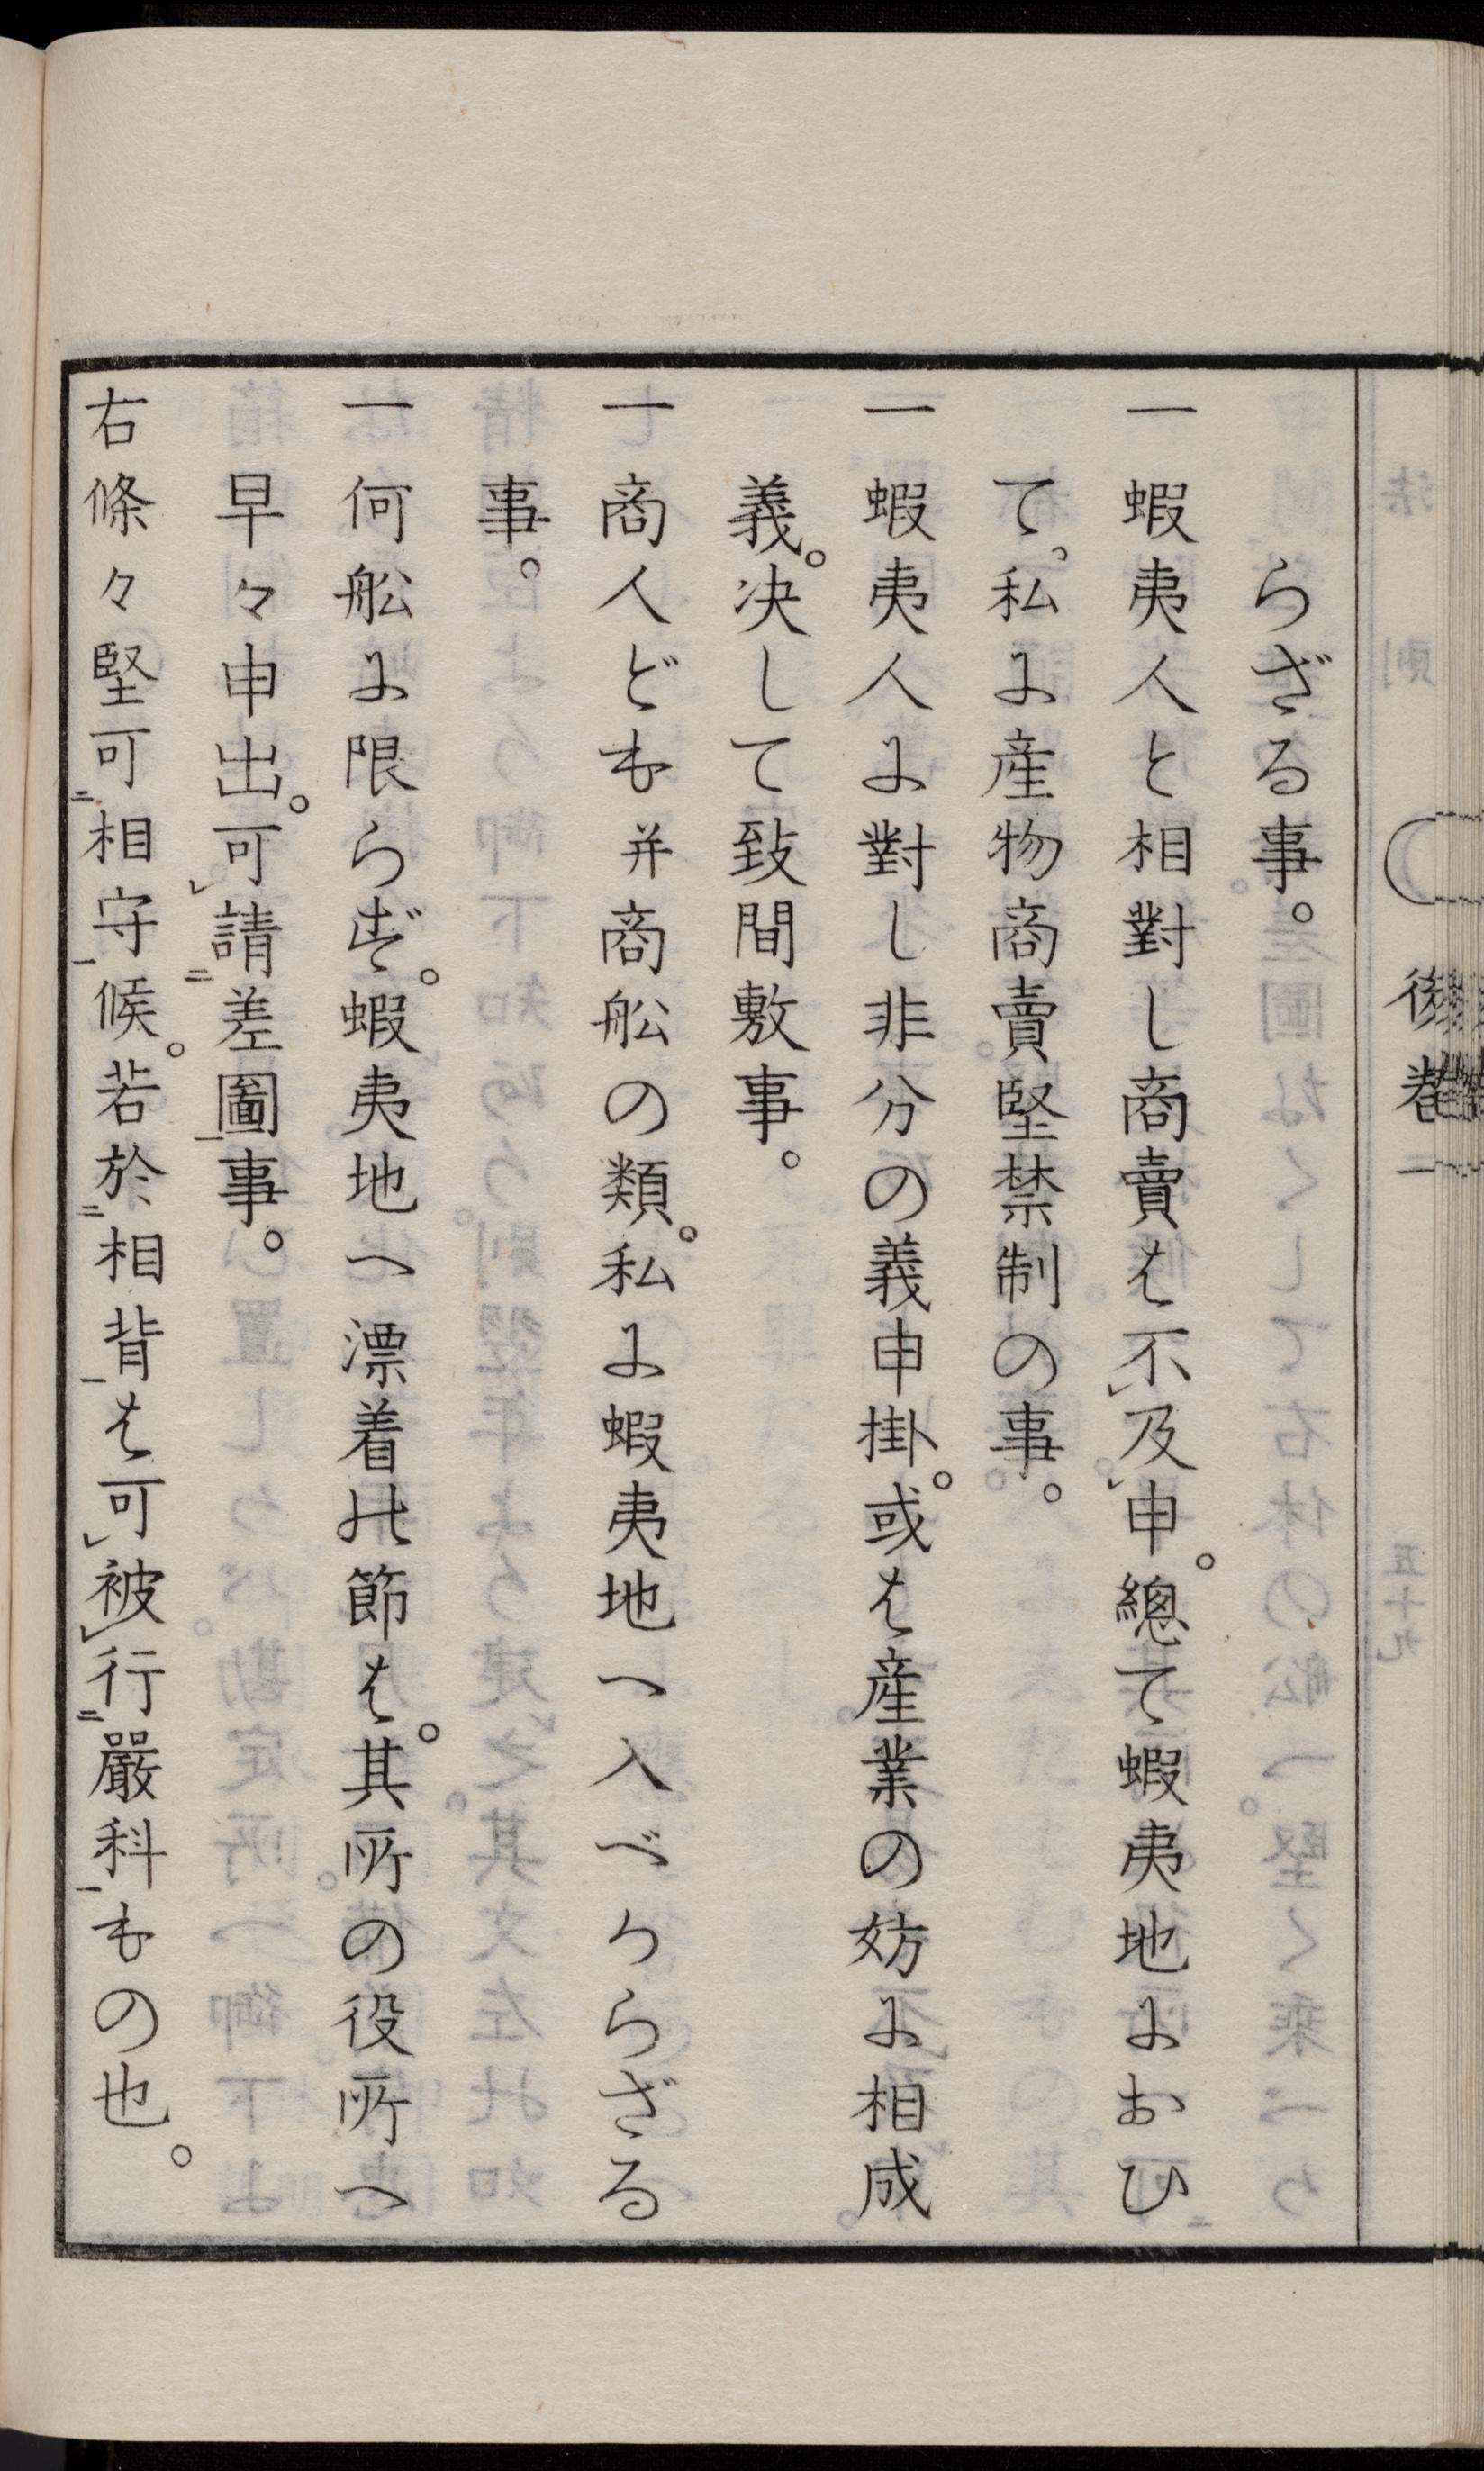 らざる事。
一 蝦夷人と相對し商賣は不㆑及㆑申。總て蝦夷地におひ
て。私に産物商賣堅禁制の事。
一 蝦夷人に對し非分の義申掛。或は産業の妨に相成
義。决して致間敷事。
一 商人ども并商舩の類。私に蝦夷地へ入べからざる
事。
一 何舩に限らず。蝦夷地へ漂着の節は。其所の役所へ
早々申出。可㆑請㆓差圖㆒事。
右條々堅可㆓相守㆒候。若於㆓相背㆒は可㆑被㆑行㆓嚴科㆒もの也。
後巻一